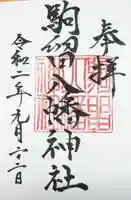 奉拝
駒留八幡神社
令和二年九月二十二日